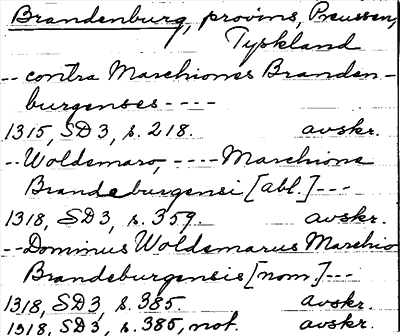 Brandenburg, provins, Preussen,
Tyskland
-- contra Marchiones Branden-
burgenses ----
1315, SD3, s. 218. avskr.
-- Woldemaro, ---- Marchione
Brandeburgensi [abl.] ---
1318, SD3, s. 359. avskr.
-- Dominus Woldemarus Marchio
Brandeburgensis [nom.] ---
1318, SD3, s. 385 avskr.
1318, SD3, s. 385, not. avskr.